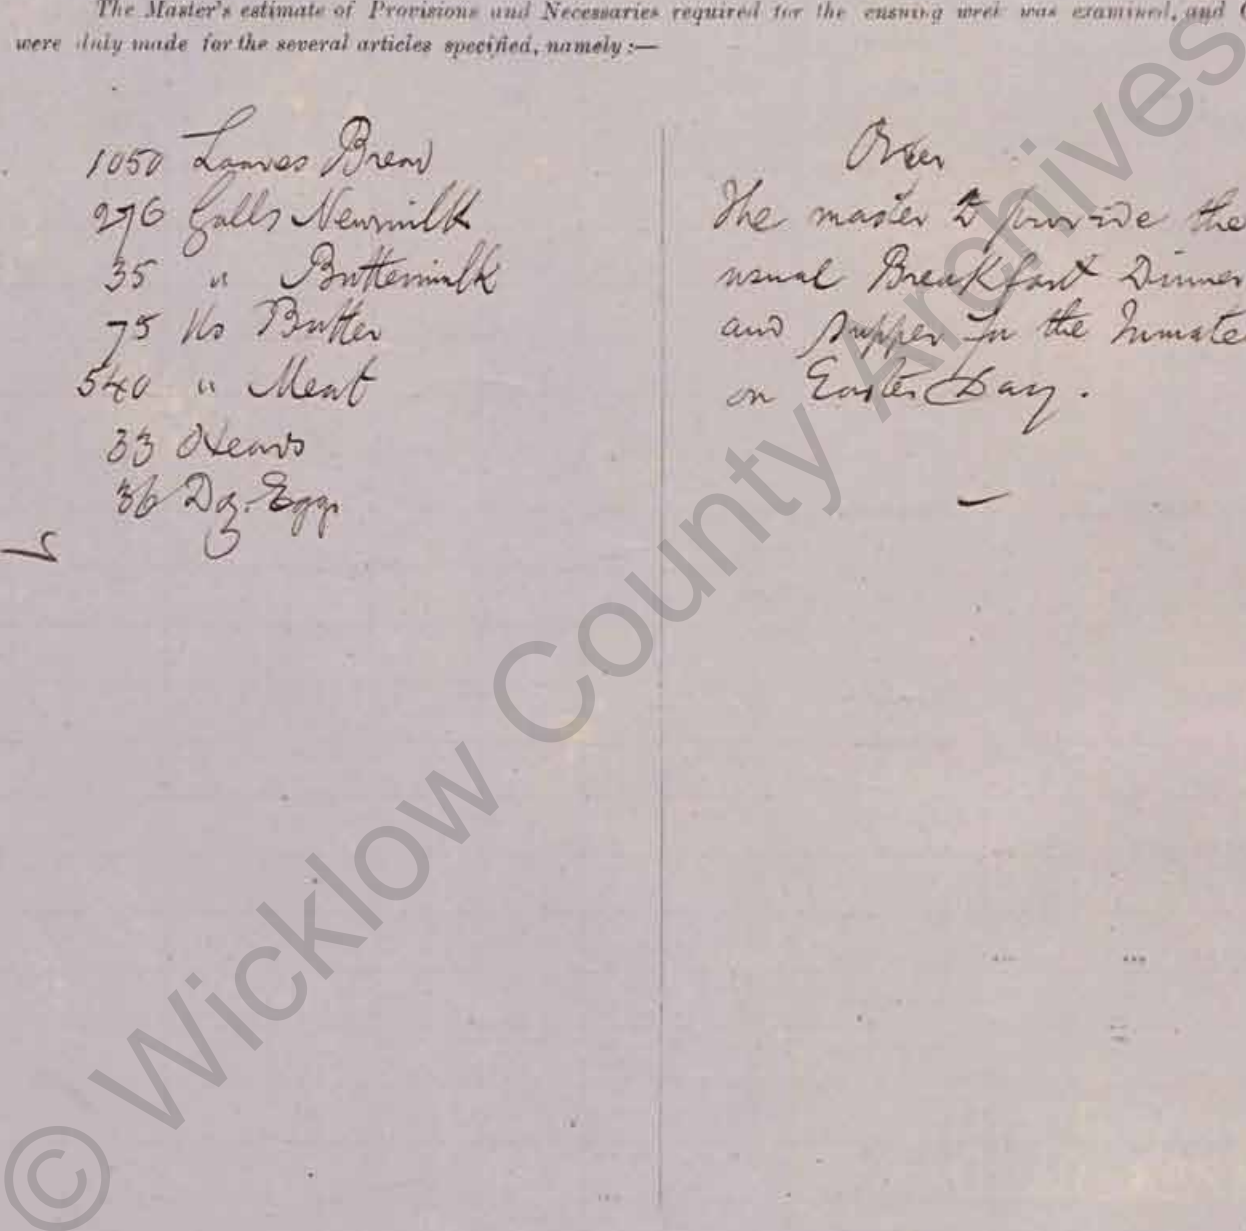 The Master's estimate of Provisions and Necessaries required for the ensuing week was examined, and
were duly made for the several articles specified, namely :—
1050 Loaves Bread
276 Galls Newmilk
35 " Buttermilk
75 lbs Butter
540 " Meat
33 Oxheads
36 Doz. Eggs
Order
The master to provide the
usual Breakfast Dinner
and Supper for the Inmate
on Easter Day.
© Wicklow County Archives